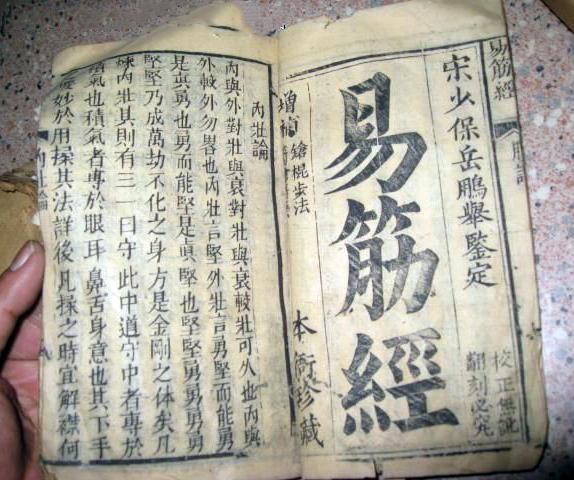 易筋經
宋少保岳鵬舉鑒定
校正無訛
翻刻必究
易筋經
增補
鎗棍步法
本衙珍藏
內壯論
內與外對壯與衰對壯與衰較壯可久也內與
外較外勿畧也內壯言堅外壯言勇堅而能勇
是真勇也勇而能堅是真堅也堅堅勇勇勇勇
堅堅乃成萬劫不化之身方是金剛之体矣凡
煉內壯其則有三一曰守此中道守中者專於
積氣也積氣者專於眼耳鼻舌身意也其下手
妙於用揉其法詳後凡揉之時宜解襟何
內壯論